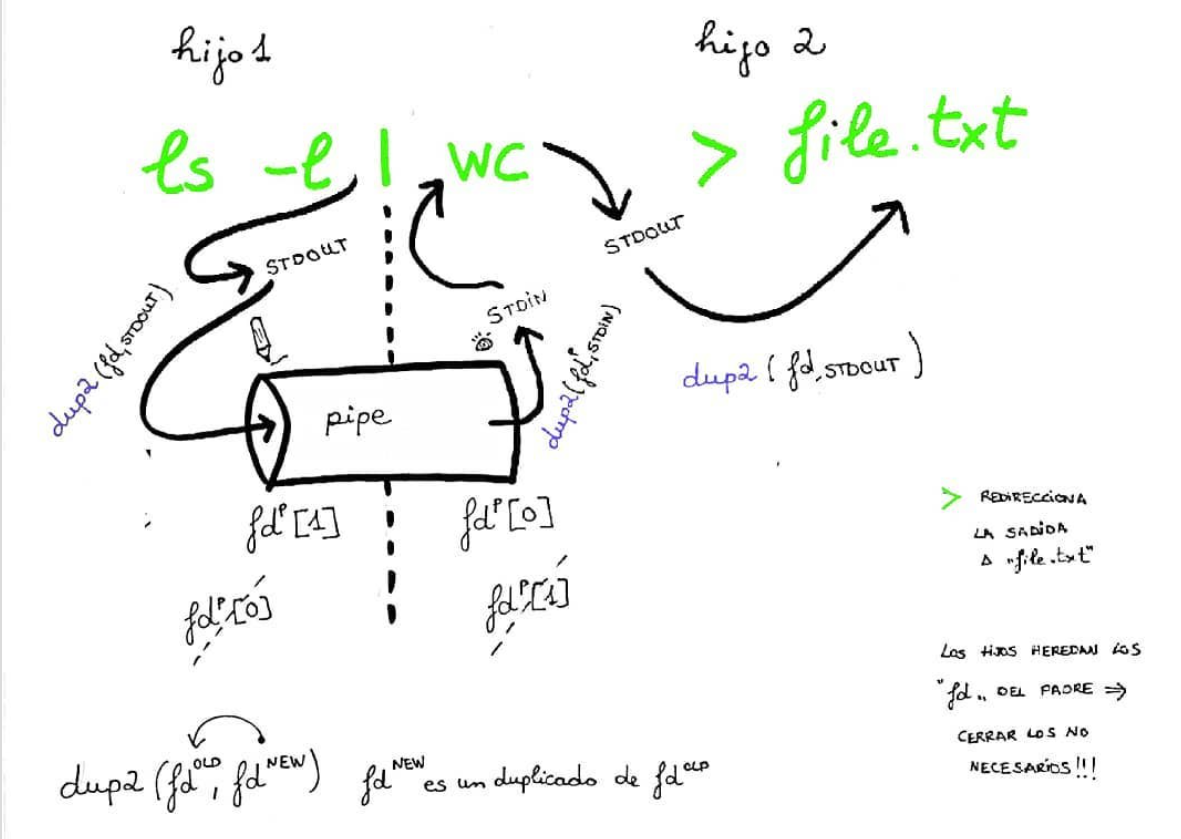 hijo 1
hijo 2
ls -l | WC > file.txt
STDOUT
STDOUT
dup2 (fd, STDOUT)
STDIN
dup2 (fdᴾ, STDIN)
dup2 ( fd, STDOUT )
pipe
fdᴾ [1]
fdᴾ [0]
fdᴾ [0]
fdᴾ [1]
> REDIRECCIONA
LA SADIDA
A "file.txt"
LOS HIJOS HEREDAN LOS
"fd" DEL PADRE ⇒
CERRAR LOS NO
NECESARIOS!!!
dup2 (fd OLD, fd NEW) fd NEW es un duplicado de fd OLD